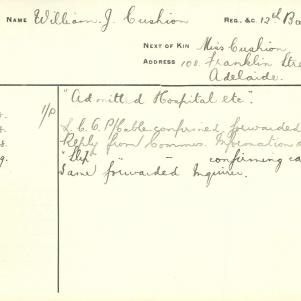 NAME William. J. Cushion REG. &C. 12th Ba
NEXT OF KIN Miss Cushion.
ADDRESS 101. Franklin Stre
Adelaide.
"Admitted Hospital etc".
1/p L. C. O. P/Cable confirmed, forwarded
Reply from Commrs. Information
"Dep" " - confirming ca
Same forwarded Inquirer.